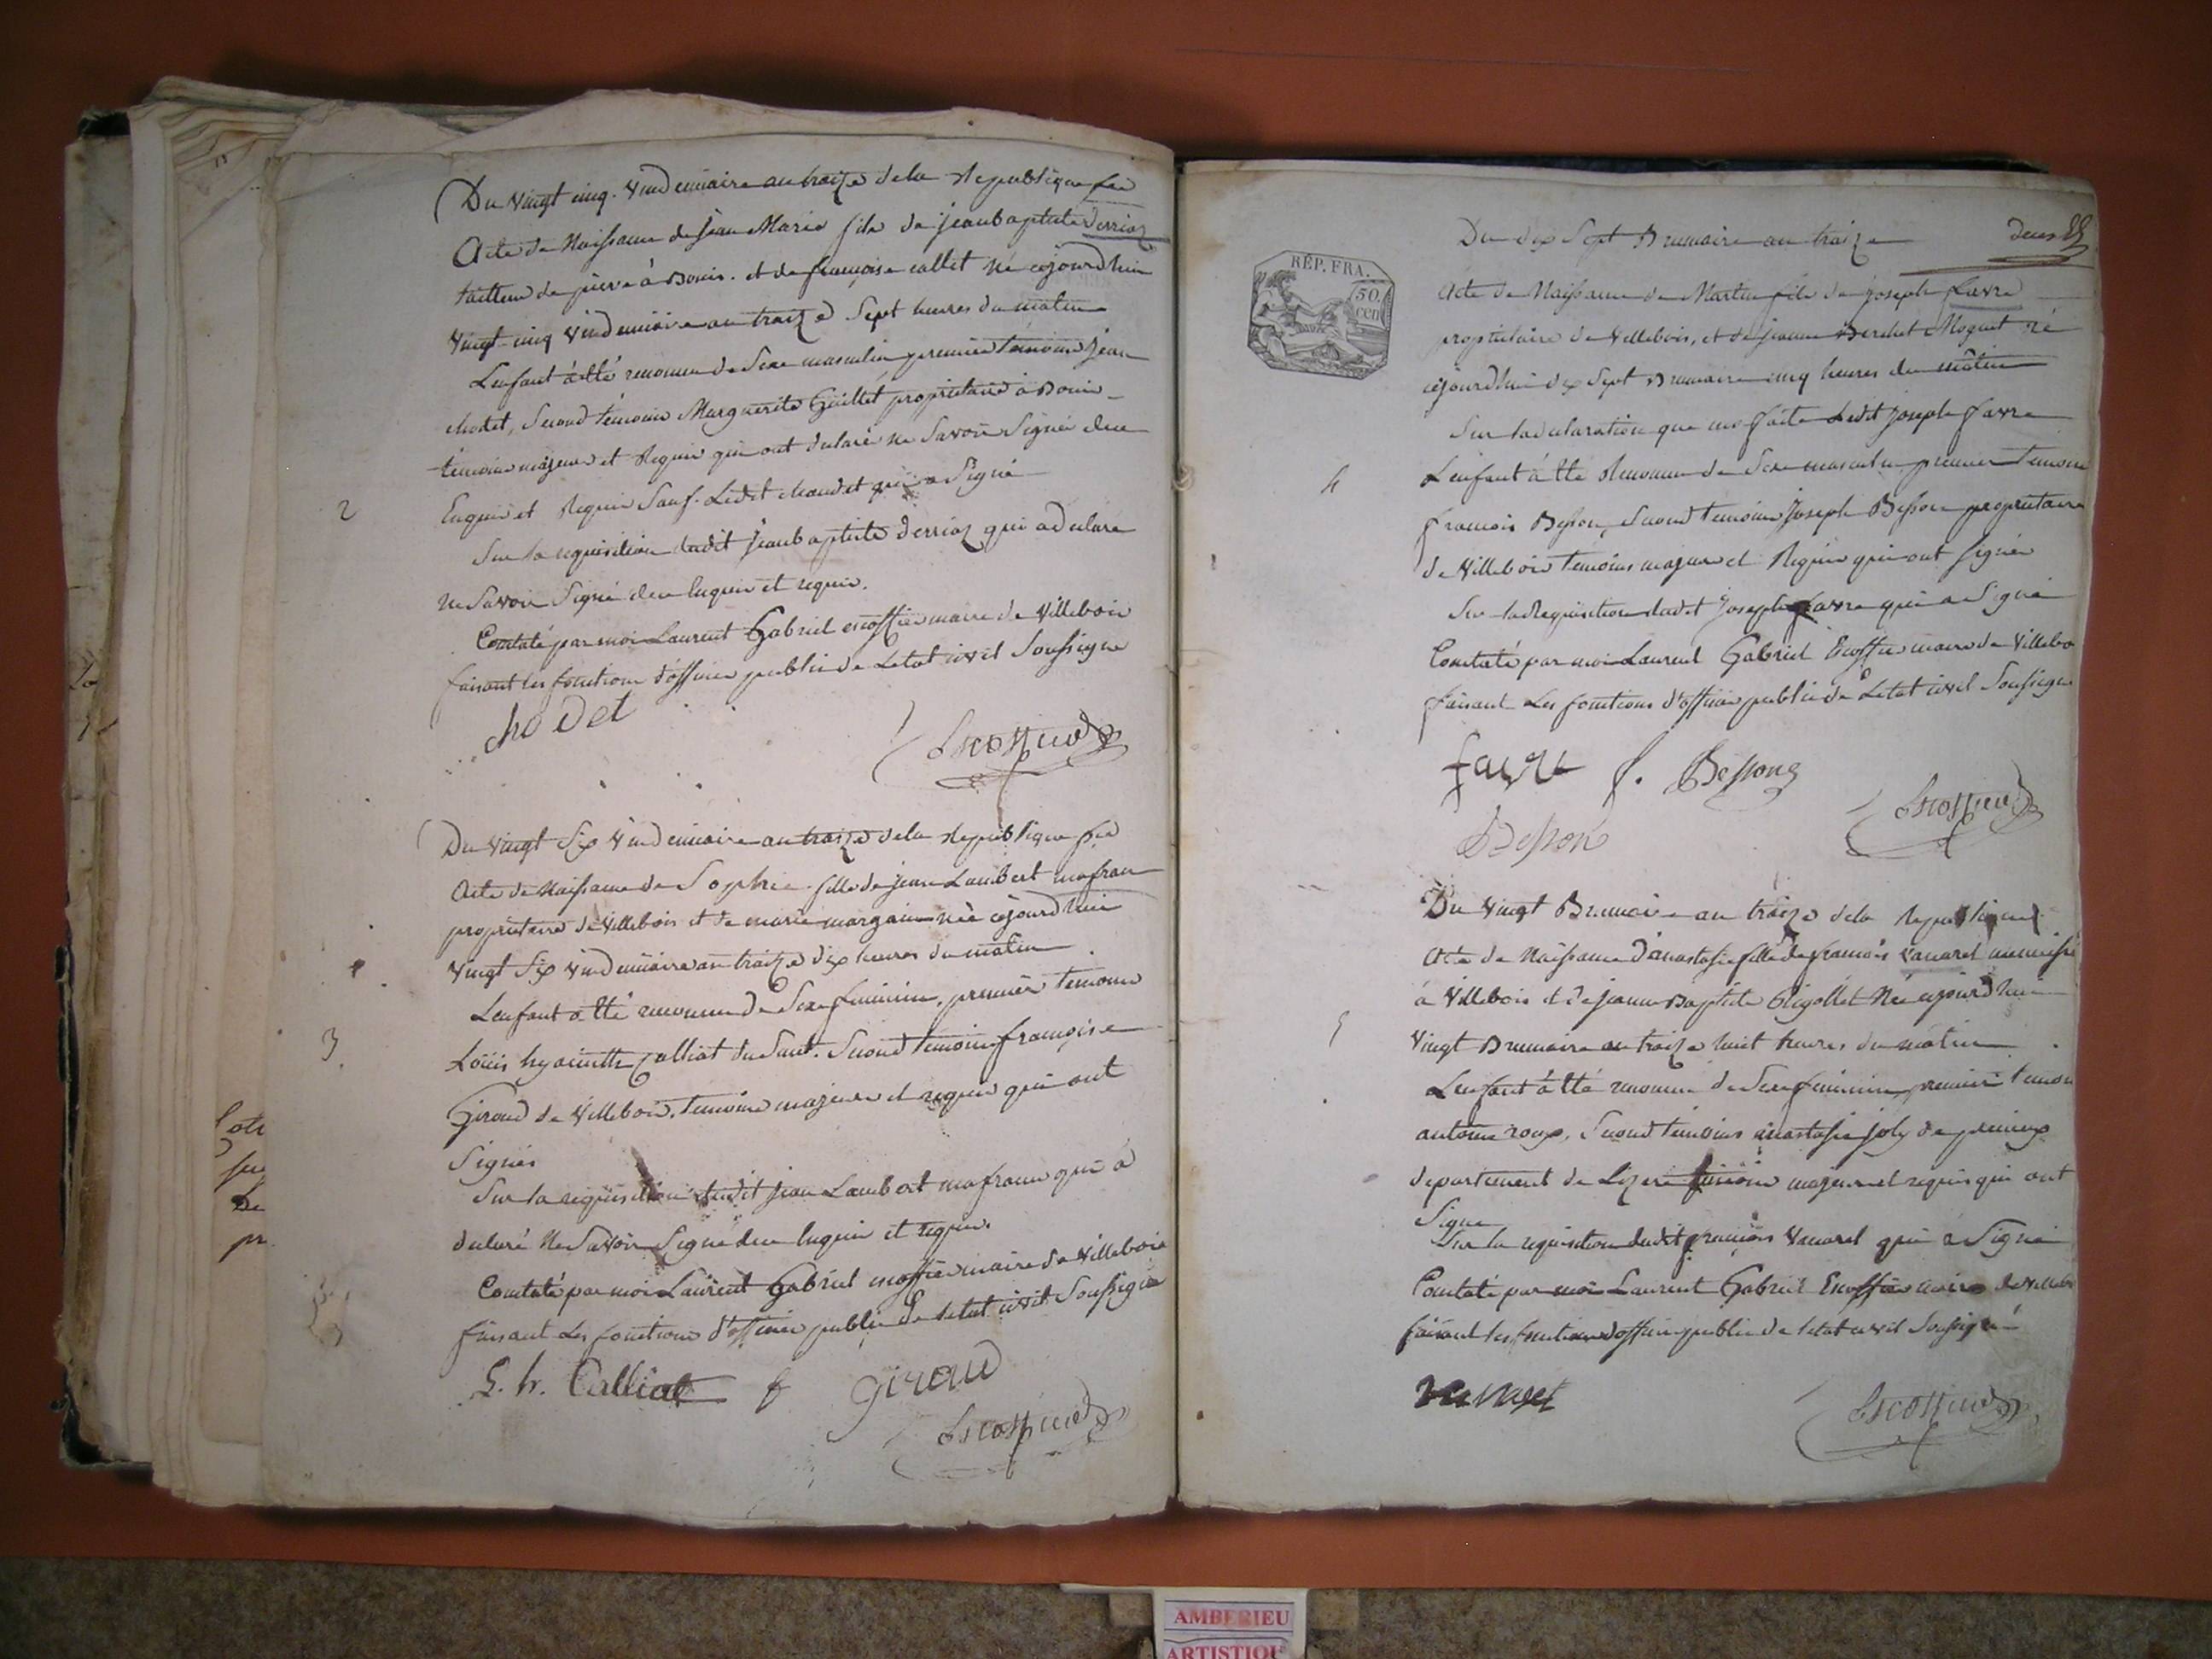 Du Vingt cinq. Vindemiaire an traize dela Republique
Acte de Naissance de jean Marie fils de jeanbaptiste Derrioz
tailleur de pierre à Bouis. et de françoise callet né cejourdhui
Vingt cinq Vindemiaire an traize Sept heures du matin
Lenfant à été reconnu de Sexe masculin premier témoin jean
chodet, Second témoin Marguerite Guillet propriétaire à Bouis
témoins majeurs et Requis qui ont déclaré ne Savoir Signer dece
2
Enquis et Requis Sauf. Ledit chaudet qui a Signé
Sur la requisition dudit jeanbaptiste Derrioz qui a déclaré
ne Savoir Signé dece Enquis et requis.
Constaté par moi Laurent Gabriel escoffier maire de Villebois
faisant les fonctions d'officier public de Letat civil Soussigné
chodet
Escoffier
Du Vingt Six Vindemiaire an traize dela Republique
Acte de Naissance de Sophie fille de jean Lambert mafran
propriétaire de Villebois et de marie margain née cejourdhui
Vingt Six Vindemiaire an traize dix heures du matin
Lenfant a été reconnu de Sexe feminin, premier temoin
3
Loüis hyacinthe Calliat du Saut. Second temoin françoise
Giroud de Villebois, temoins majeurs et requis qui ont
Signés
Sur la requisition dudit jean Lambert mafran qui à
déclaré Ne Savoir Signé dece Enquis et requis.
Constaté par moi Laurent Gabriel escoffier maire de Villebois
faisant Les fonctions d'officier public de Letat civil Soussigné
L. h. Calliat f giroud
Escoffier
Du dix Sept Brumaire an traize
deux
RÉP. FRA.
50
cen
Acte de Naissance de Martin fils de joseph Favre
propriétaire de Villebois, et de jeanne Berchet Moguet né
cejourdhui dix Sept Brumaire cinq heures du matin
Sur la declaration que ma faite Ledit joseph favre
4
L'enfant à été Reconnu de Sexe masculin premier temoin
francois Besson, Second temoin Joseph Besson propriétaire
de Villebois temoins majeurs et Requis qui ont Signés
Sur la Requisition dudit Joseph favre qui a Signé
Constaté par moi Laurent Gabriel Escoffier maire de Villebo
faisant Les fonctions d'officier public de Letat civil Soussigné
favre f. Bessong
Besson
Escoffier
Du Vingt Brumaire an traize dela Republique
Acte de Naissance d'anastasie fille de francois Vanarel
à Villebois et de jeanne Baptiste Rigollet Née cejourdhui
5
Vingt Brumaire an traize huit heures du matin
Lenfant à été reconnu de Sexe feminin, premier temoin
antoine roux, Second temoins anastasie joly de
departement de Lizere temoins majeurs et requis qui ont
Signe
Sur la requisition dudit francois Vanarel qui à Signé
Constaté par moi Laurent Gabriel Escoffier maire de Villebo
faisant les fonctions d'officier public de letat civil Soussigné
Escoffier
AMBERIEU
ARTISTIQU